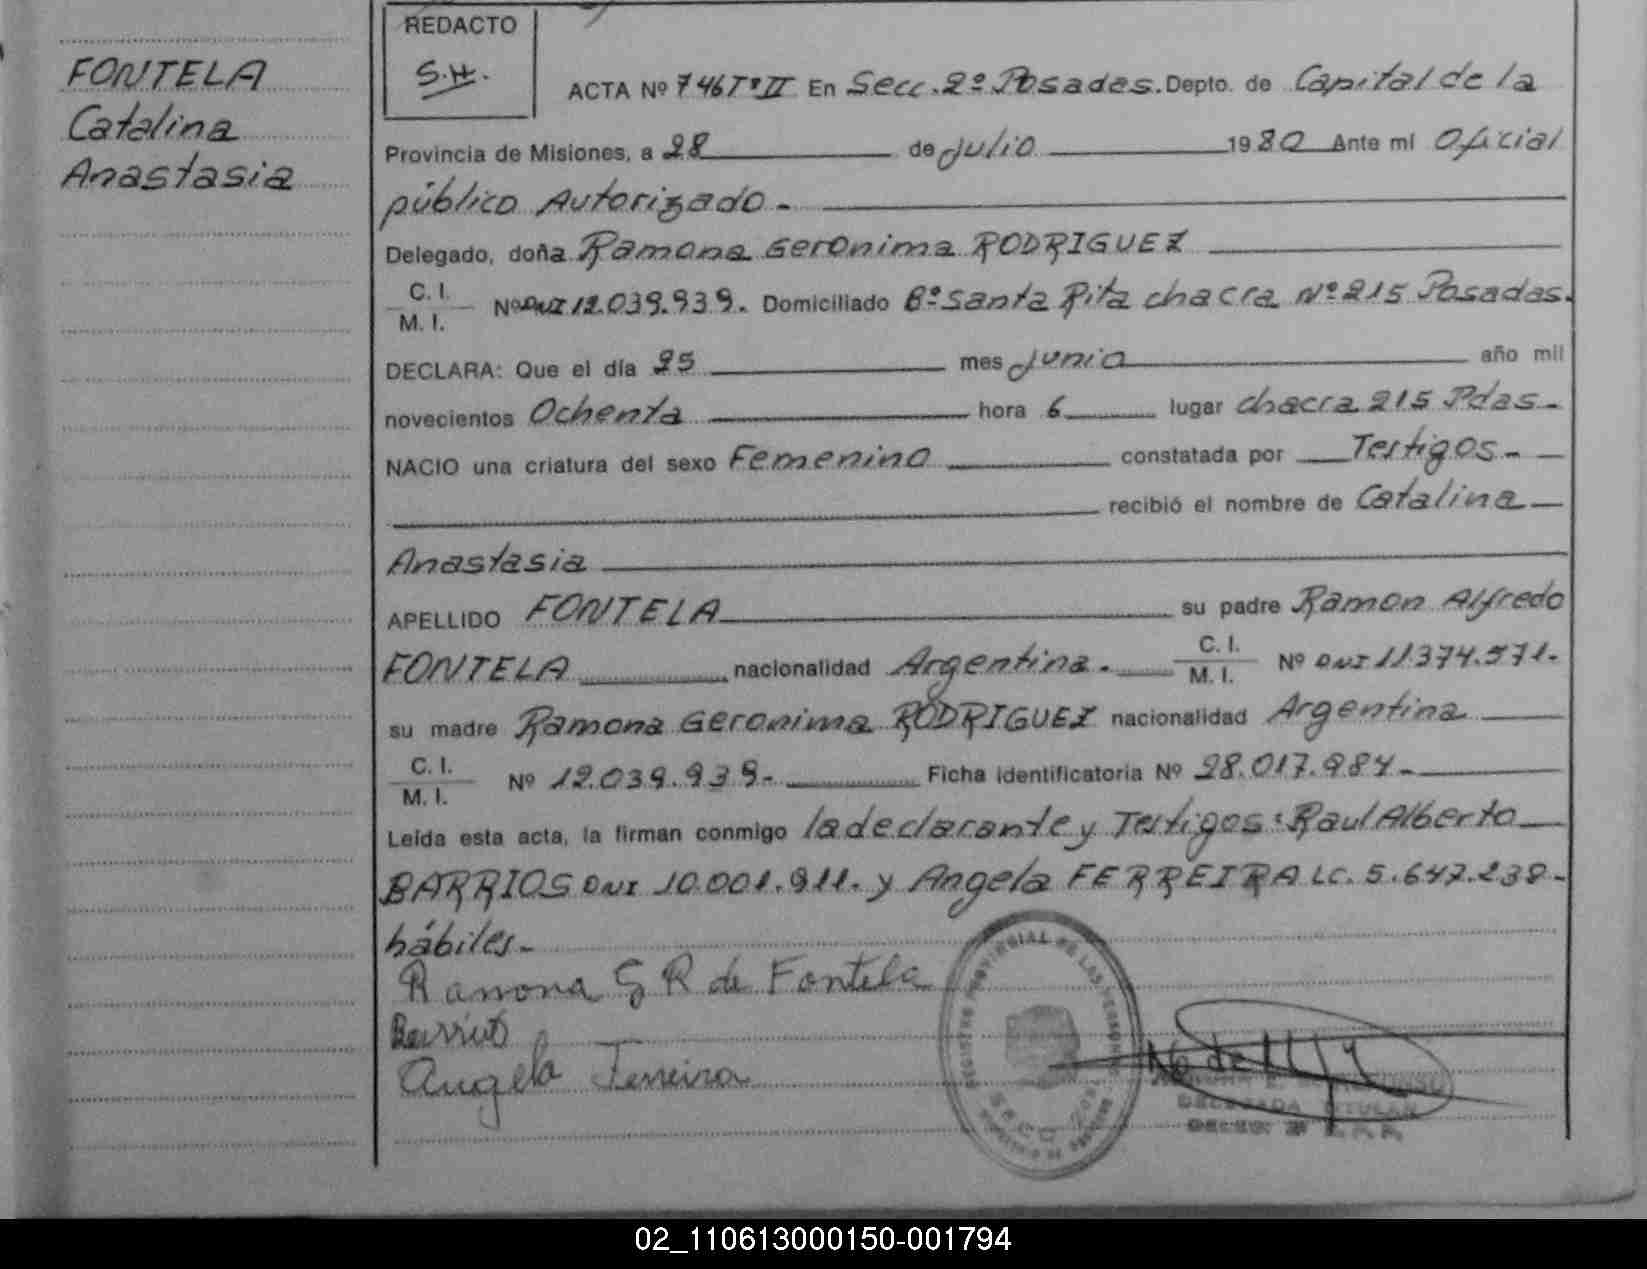 FONTELA
Catalina
Anastasia
REDACTO
S.H.
ACTA Nº 746 Tº II En Secc. 2º Posadas. Depto. de Capital de la
Provincia de Misiones, a 28 de julio 1980 Ante mi Oficial
público Autorizado.-
Delegado, doña Ramona Geronima RODRIGUEZ
C. I.
M. I. Nº DNI 12.039.939. Domiciliado Bº Santa Rita chacra Nº 215 Posadas.
DECLARA: Que el día 25 mes junio año mil
novecientos Ochenta hora 6 lugar chacra 215 Pdas.-
NACIO una criatura del sexo Femenino constatada por Testigos.-
recibió el nombre de Catalina
Anastasia
APELLIDO FONTELA su padre Ramon Alfredo
FONTELA nacionalidad Argentina. C. I.
M. I. Nº DNI 11.374.571.
su madre Ramona Geronima RODRIGUEZ nacionalidad Argentina
C. I.
M. I. Nº 12.039.939.- Ficha identificatoria Nº 28.017.984.-
Leída esta acta, la firman conmigo la declarante y Testigos: Raul Alberto
BARRIOS DNI 10.001.911. y Angela FERREIRA LC. 5.647.238.-
hábiles.-
Ramona G R de Fontela
Barrios
Angela Ferreira
REGISTRO PROVINCIAL DE LAS PERSONAS
DELEGADA TITULAR